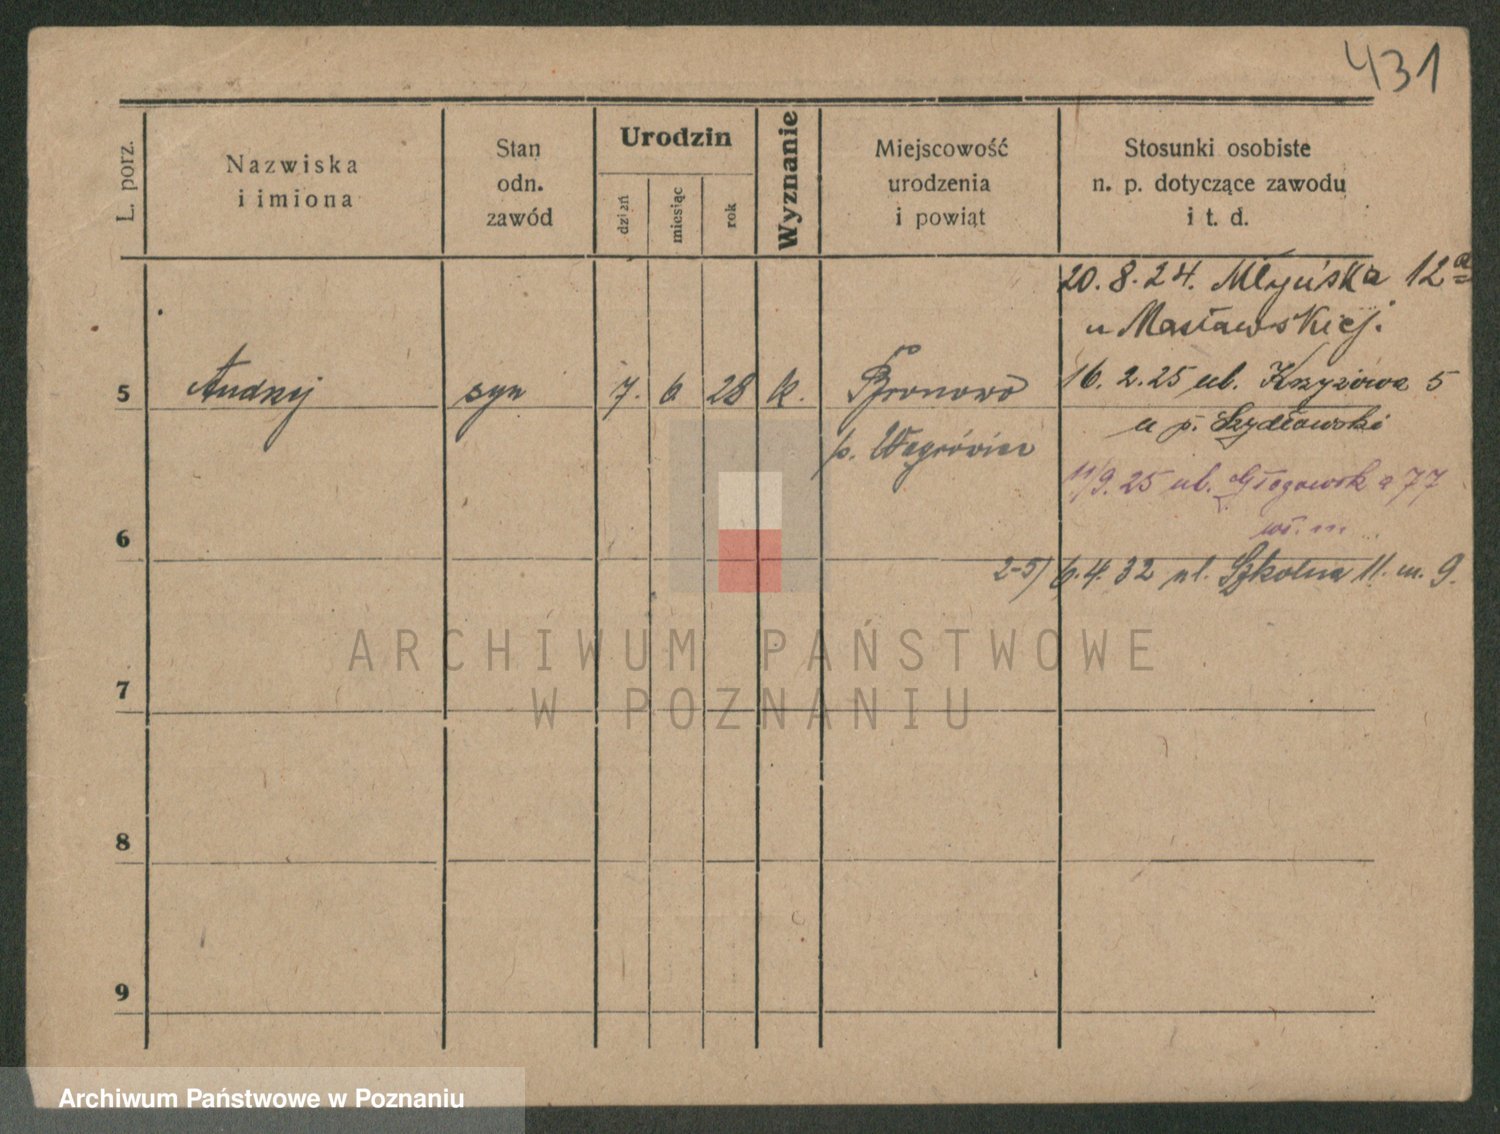 431
L. porz.
Nazwiska
i imiona
Stan
odn.
zawód
Urodzin
dzień
miesiąc
rok
Wyznanie
Miejscowość
urodzenia
i powiat
Stosunki osobiste
n. p. dotyczące zawodu
i t. d.
20. 8. 24. Młyńska 12a
u Masławskiej.
5 Andrzej syn 7. 6 28 k. Bronowo
16. 2. 25 ul. Krzyżowa 5
u p. Szydłowski
p. Wągrówiec
11/9. 25 ul. Głogowska 77
6
2-5) 6. 4. 32 ul. Szkolna 11. m. 9.
ARCHIWUM PAŃSTWOWE
W POZNANIU
7
8
9
Archiwum Państwowe w Poznaniu